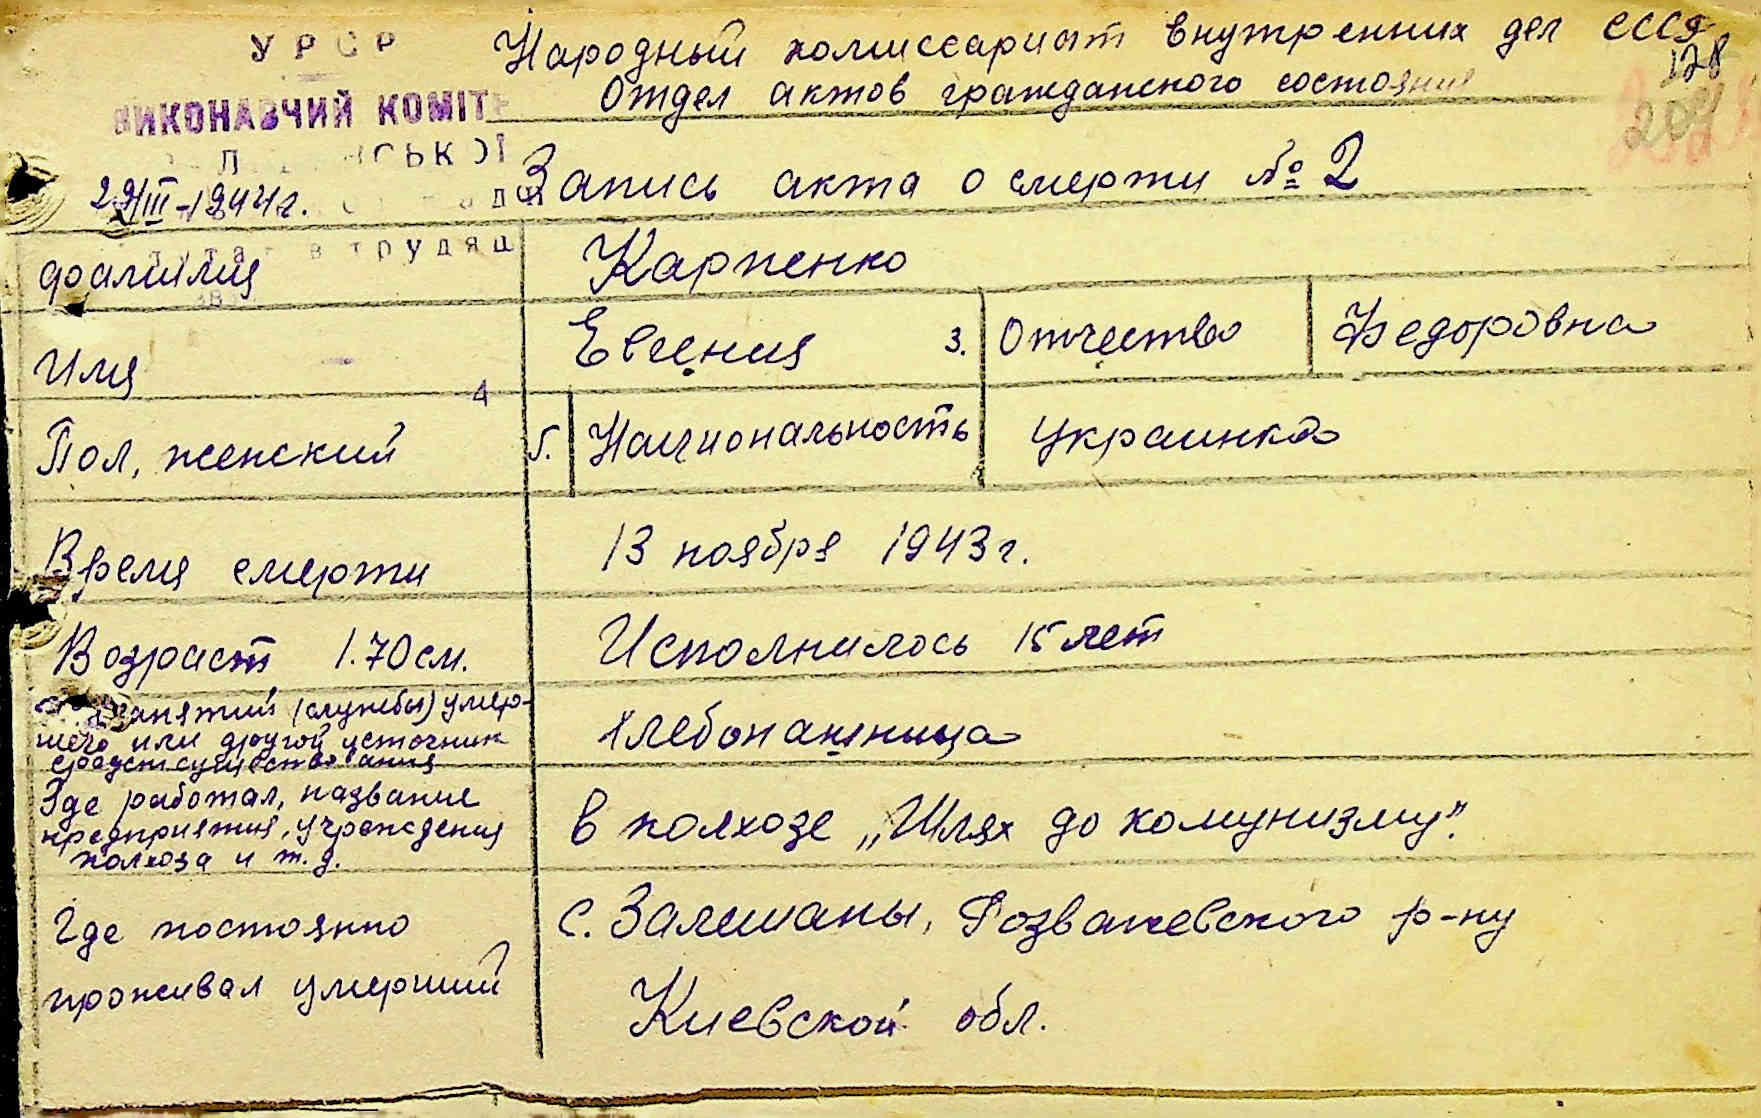 УРСР
Народный комиссариат внутренних дел СССР
128
Отдел актов гражданского состояния
204
ВИКОНАВЧИЙ КОМІТЕ
Запись акта о смерти № 2
29/III-1944г.
трудящ
фамилия Карпенко
Имя Евгения 3. Отчество Федоровна
4
Пол, женский 5. Национальность украинка
Время смерти 13 ноября 1943 г.
Возраст 1.70 см. Исполнилось 15 лет
занятий (службы) умер-
шего или другой источник Хлебопашница
средст существования
Где работал, название
предприятия, учреждения в колхозе „Шлях до комунизму".
колхоза и т.д.
Где постоянно с. Залешаны, Розважевского р-ну
проживал умерший Киевской обл.